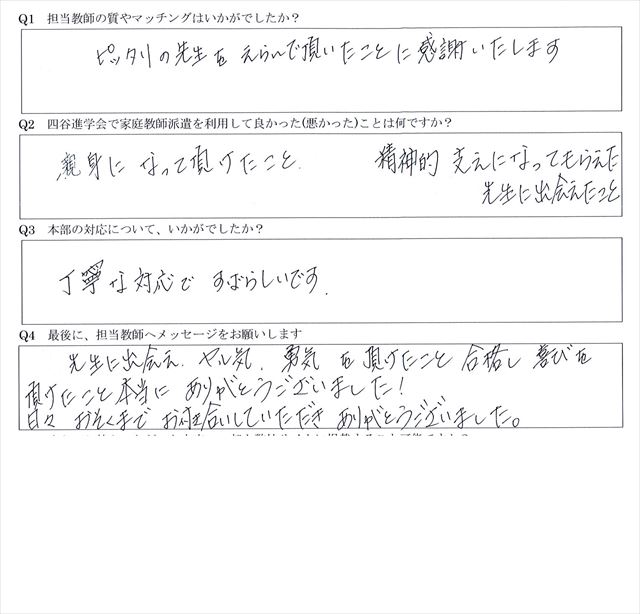 Q1 担当教師の質やマッチングはいかがでしたか？
ピッタリの先生を えらんで頂いたことに感謝いたします
Q2 四谷進学会で家庭教師派遣を利用して良かった(悪かった)ことは何ですか？
親身に なって頂けたこと. 精神的 支えになってもらえた
先生に出会えたこと
Q3 本部の対応について、いかがでしたか？
丁寧な対応で すばらしいです.
Q4 最後に、担当教師へメッセージをお願いします
先生に出会え. ヤル気. 勇気 を 頂けたこと 合格し 喜びを
頂けたこと 本当に ありがとうございました!
日々 おそくまで お付き合いしていただき ありがとうございました。